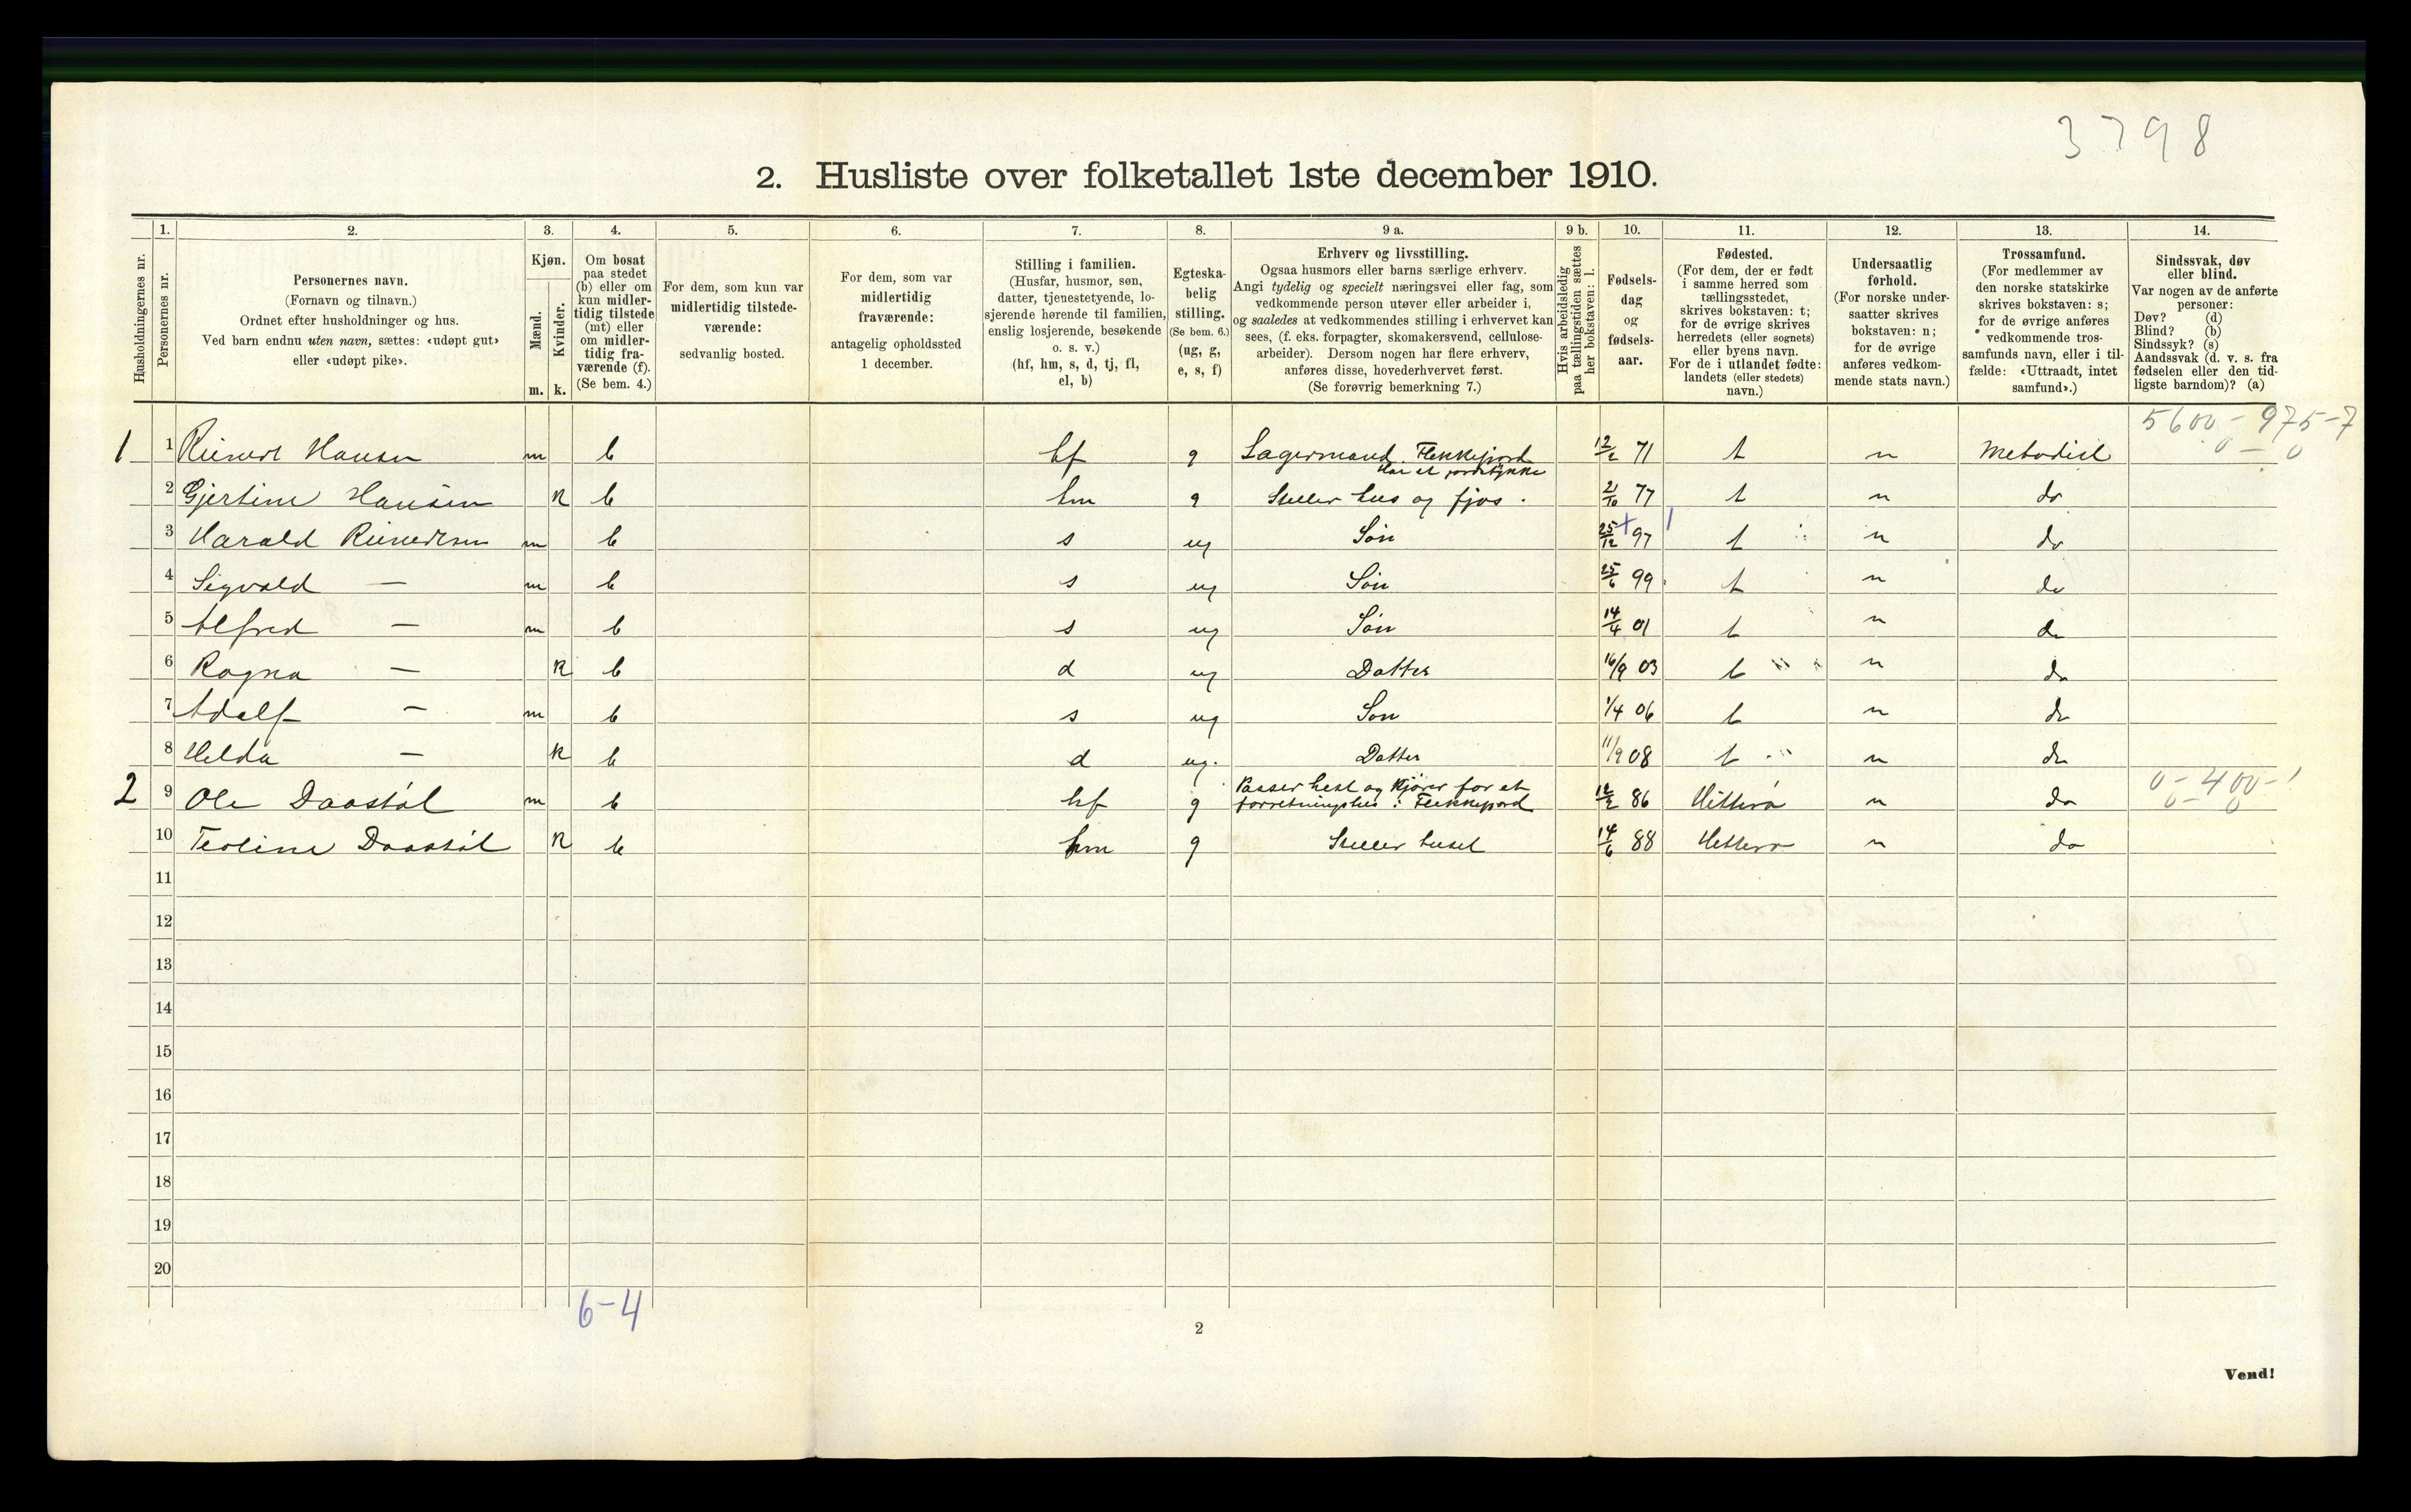 3798
2. Husliste over folketallet 1ste december 1910.
Husholdningernes nr.
1. Personernes nr.
2. Personernes navn.
(Fornavn og tilnavn.)
Ordnet efter husholdninger og hus.
Ved barn endnu uten navn, sættes: «udøpt gut»
eller «udøpt pike».
3. Kjøn.
Mænd. m.
Kvinder. k.
4. Om bosat
paa stedet
(b) eller om
kun midler-
tidig tilstede
(mt) eller
om midler-
tidig fra-
værende (f).
(Se bem. 4.)
5. For dem, som kun var
midlertidig tilstede-
værende:
sedvanlig bosted.
6. For dem, som var
midlertidig
fraværende:
antagelig opholdssted
1 december.
7. Stilling i familien.
(Husfar, husmor, søn,
datter, tjenestetyende, lo-
sjerende hørende til familien,
enslig losjerende, besøkende
o. s. v.)
(hf, hm, s, d, tj, fl,
el, b)
8. Egteska-
belig
stilling.
(Se bem. 6.)
(ug, g,
e, s, f)
9 a. Erhverv og livsstilling.
Ogsaa husmors eller barns særlige erhverv.
Angi tydelig og specielt næringsvei eller fag, som
vedkommende person utøver eller arbeider i,
og saaledes at vedkommendes stilling i erhvervet kan
sees, (f. eks. forpagter, skomakersvend, cellulose-
arbeider). Dersom nogen har flere erhverv,
anføres disse, hovederhvervet først.
(Se forøvrig bemerkning 7.)
9 b. Hvis arbeidsledig
paa tællingstiden sættes
her bokstaven: l.
10. Fødsels-
dag
og
fødsels-
aar.
11. Fødested.
(For dem, der er født
i samme herred som
tællingsstedet,
skrives bokstaven: t;
for de øvrige skrives
herredets (eller sognets)
eller byens navn.
For de i utlandet fødte:
landets (eller stedets)
navn.)
12. Undersaatlig
forhold.
(For norske under-
saatter skrives
bokstaven: n;
for de øvrige
anføres vedkom-
mende stats navn.)
13. Trossamfund.
(For medlemmer av
den norske statskirke
skrives bokstaven: s;
for de øvrige anføres
vedkommende tros-
samfunds navn, eller i til-
fælde: «Uttraadt, intet
samfund».)
14. Sindssvak, døv
eller blind.
Var nogen av de anførte
personer:
Døv? (d)
Blind? (b)
Sindssyk? (s)
Aandssvak (d. v. s. fra
fødselen eller den tid-
ligste barndom)? (a)
5600-975-7
0 - 0
1 1 Reinert Hansen m b hf g Lagermand Flekkefjord 12/2 71 t n Metodist
Har et jordstykke
2 Gjertine Hansen k b hm g Steller hus og fjøs. 21/10 77 t n do
3 Harald Reinertsen m b s ug Søn 25/12 97 t n do
4 Sigvald — m b s ug Søn 25/6 99 t n do
5 Alfred — m b s ug Søn 14/4 01 t n do
6 Ragna — k b d ug Datter 16/9 03 t n do
7 Adolf — m b s ug Søn 1/4 06 t n do
8 Helda — k b d ug. Datter 11/9 08 t n do
0-400-1
0-0
2 9 Ole Daastøl m b hf g Passer hest og kjører for et
forretningshus i Flekkefjord 12/2 86 Hitterø n do
10 Teoline Daastøl k b hm g Steller huset 14/6 88 Hitterø n do
11
12
13
14
15
16
17
18
19
20
6-4
2
Vend!